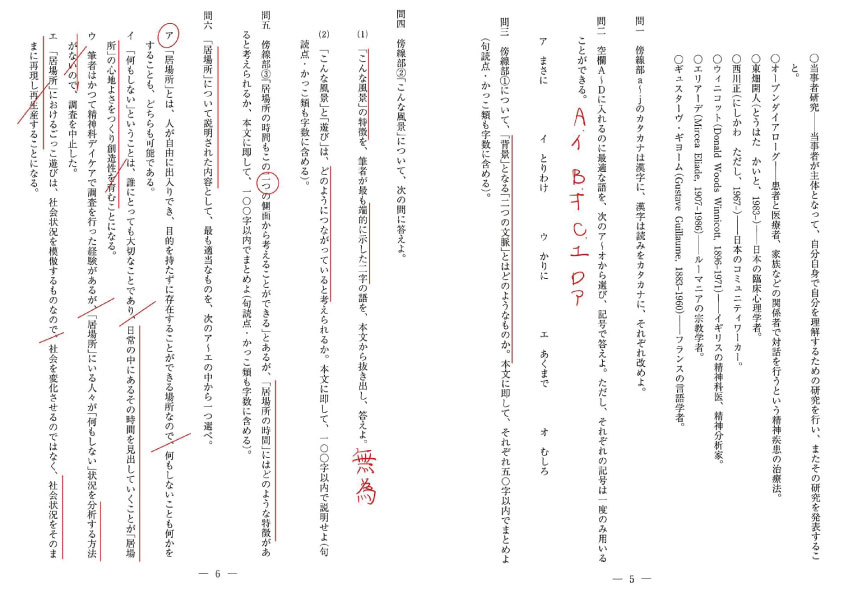 ○当事者研究――当事者が主体となって、自分自身で自分を理解するための研究を行い、またその研究を発表するこ
と。
○オープンダイアローグ――患者と医療者、家族などの関係者で対話を行うという精神疾患の治療法。
○東畑開人(とうはた かいと、1983-)――日本の臨床心理学者。
○西川正(にしかわ ただし、1967-)――日本のコミュニティワーカー。
○ウィニコット(Donald Woods Winnicott, 1896-1971)――イギリスの精神科医、精神分析家。
○エリアーデ(Mircea Eliade, 1907-1986)――ルーマニアの宗教学者。
○ギュスターヴ・ギヨーム(Gustave Guillaume, 1883-1960)――フランスの言語学者。
問一 傍線部a～jのカタカナは漢字に、漢字は読みをカタカナに、それぞれ改めよ。
問二 空欄A～Dに入れるのに最適な語を、次のア～オから選び、記号で答えよ。ただし、それぞれの記号は一度のみ用いる
ことができる。
A.イ B.オ C.エ D.ア
ア まさに イ とりわけ ウ かりに エ あくまで オ むしろ
問三 傍線部①について、「背景」となる「二つの文脈」とはどのようなものか。本文に即して、それぞれ五〇字以内でまとめよ
(句読点・かっこ類も字数に含める)。
― 5 ―
問四 傍線部②「こんな風景」について、次の問に答えよ。
(1) 「こんな風景」の特徴を、筆者が最も端的に示した二字の語を、本文から抜き出し、答えよ。
無為
(2) 「こんな風景」と「遊び」は、どのようにつながっていると考えられるか。本文に即して、一〇〇字以内で説明せよ(句
読点・かっこ類も字数に含める)。
問五 傍線部③「居場所の時間もこの二つの側面から考えることができる」とあるが、「居場所の時間」にはどのような特徴があ
ると考えられるか、本文に即して、一〇〇字以内でまとめよ(句読点・かっこ類も字数に含める)。
問六 「居場所」について説明された内容として、最も適当なものを、次のア～エの中から一つ選べ。
ア 「居場所」とは、人が自由に出入りでき、目的を持たずに存在することができる場所なので、何もしないことも何かを
することも、どちらも可能である。
イ 「何もしない」ということは、誰にとっても大切なことであり、日常の中にあるその時間を見出していくことが「居場
所」の心地よさをつくり創造性を育むことになる。
ウ 筆者はかつて精神科デイケアで調査を行った経験があるが、「居場所」にいる人々が「何もしない」状況を分析する方法
がないので、調査を中止した。
エ 「居場所」におけるごっこ遊びは、社会状況を模倣するものなので、社会を変化させるのではなく、社会状況をそのま
まに再現し再生産することになる。
― 6 ―